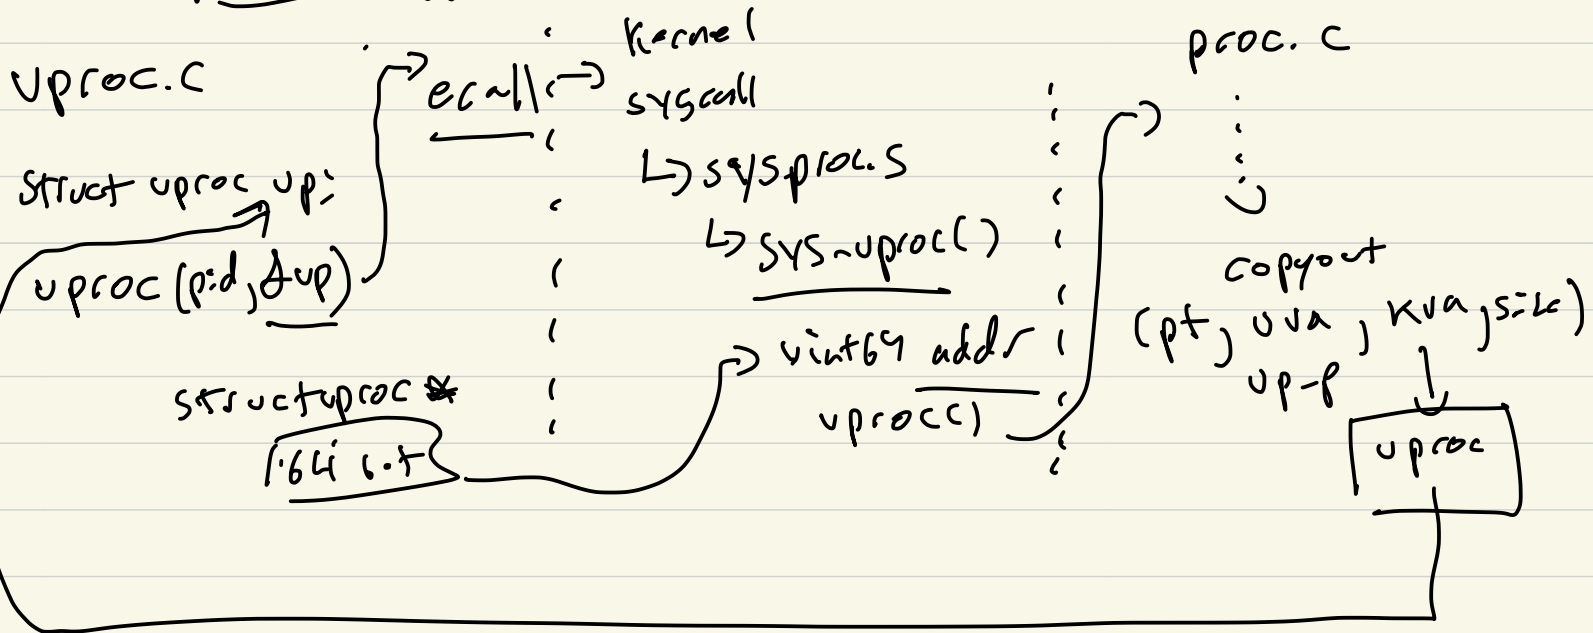 uproc.c
struct uproc up;
uproc(pid, &up)
struct uproc *
64 bit
ecall
kernel
syscall
↳ sysproc.s
↳ sys_uproc()
uint64 addr
uproc()
proc.c
copyout
(pt, uva, kva, size)
up-p
uproc